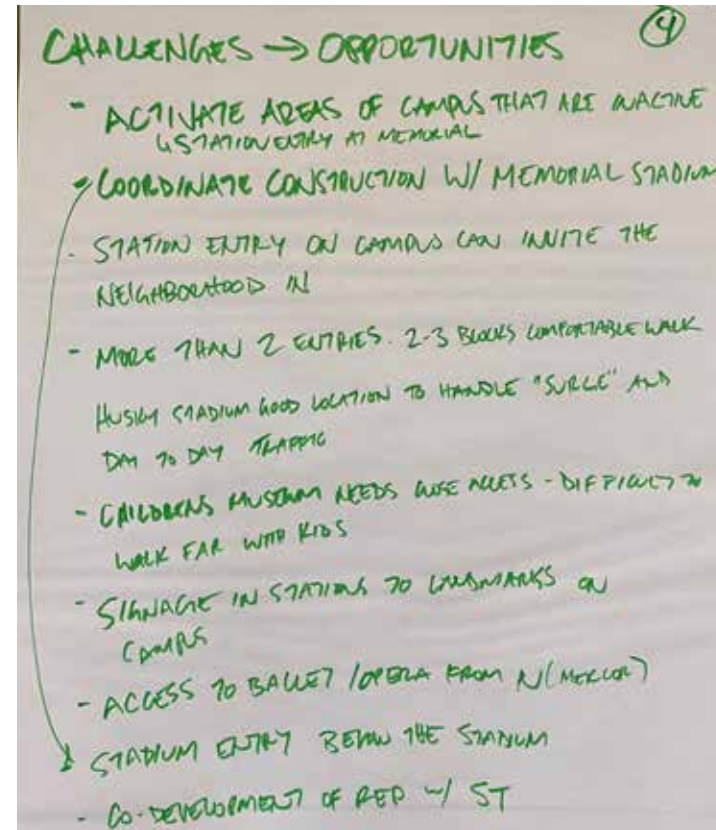 ④
CHALLENGES → OPPORTUNITIES
- ACTIVATE AREAS OF CAMPUS THAT ARE INACTIVE
↳ STATION ENTRY AT MEMORIAL
- COORDINATE CONSTRUCTION W/ MEMORIAL STADIUM
- STATION ENTRY ON CAMPUS CAN INVITE THE
NEIGHBORHOOD IN
- MORE THAN 2 ENTRIES. 2-3 BLOCKS COMFORTABLE WALK
HUSKY STADIUM GOOD LOCATION TO HANDLE "SURGE" AND
DAY TO DAY TRAFFIC
- CHILDRENS MUSEUM NEEDS CLOSE ACCESS - DIFFICULT TO
WALK FAR WITH KIDS
- SIGNAGE IN STATIONS TO LANDMARKS ON
CAMPUS
- ACCESS TO BALLET / OPERA FROM N (MERCER)
STADIUM ENTRY BELOW THE STADIUM
- CO-DEVELOPMENT OF REP W/ ST